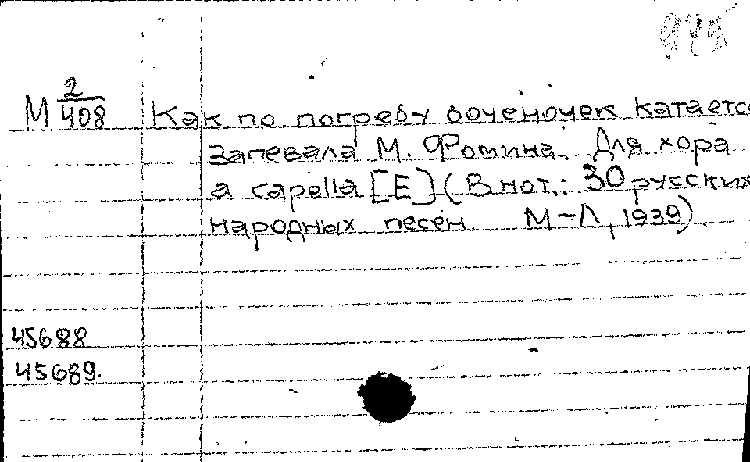 М 2/408 Как по погребу боченочек катаетс
Запевала М. Фомина. Для хора
a capella [E] (В нот.: 30 русских
народных песен М-Л, 1939)
45688
45689.